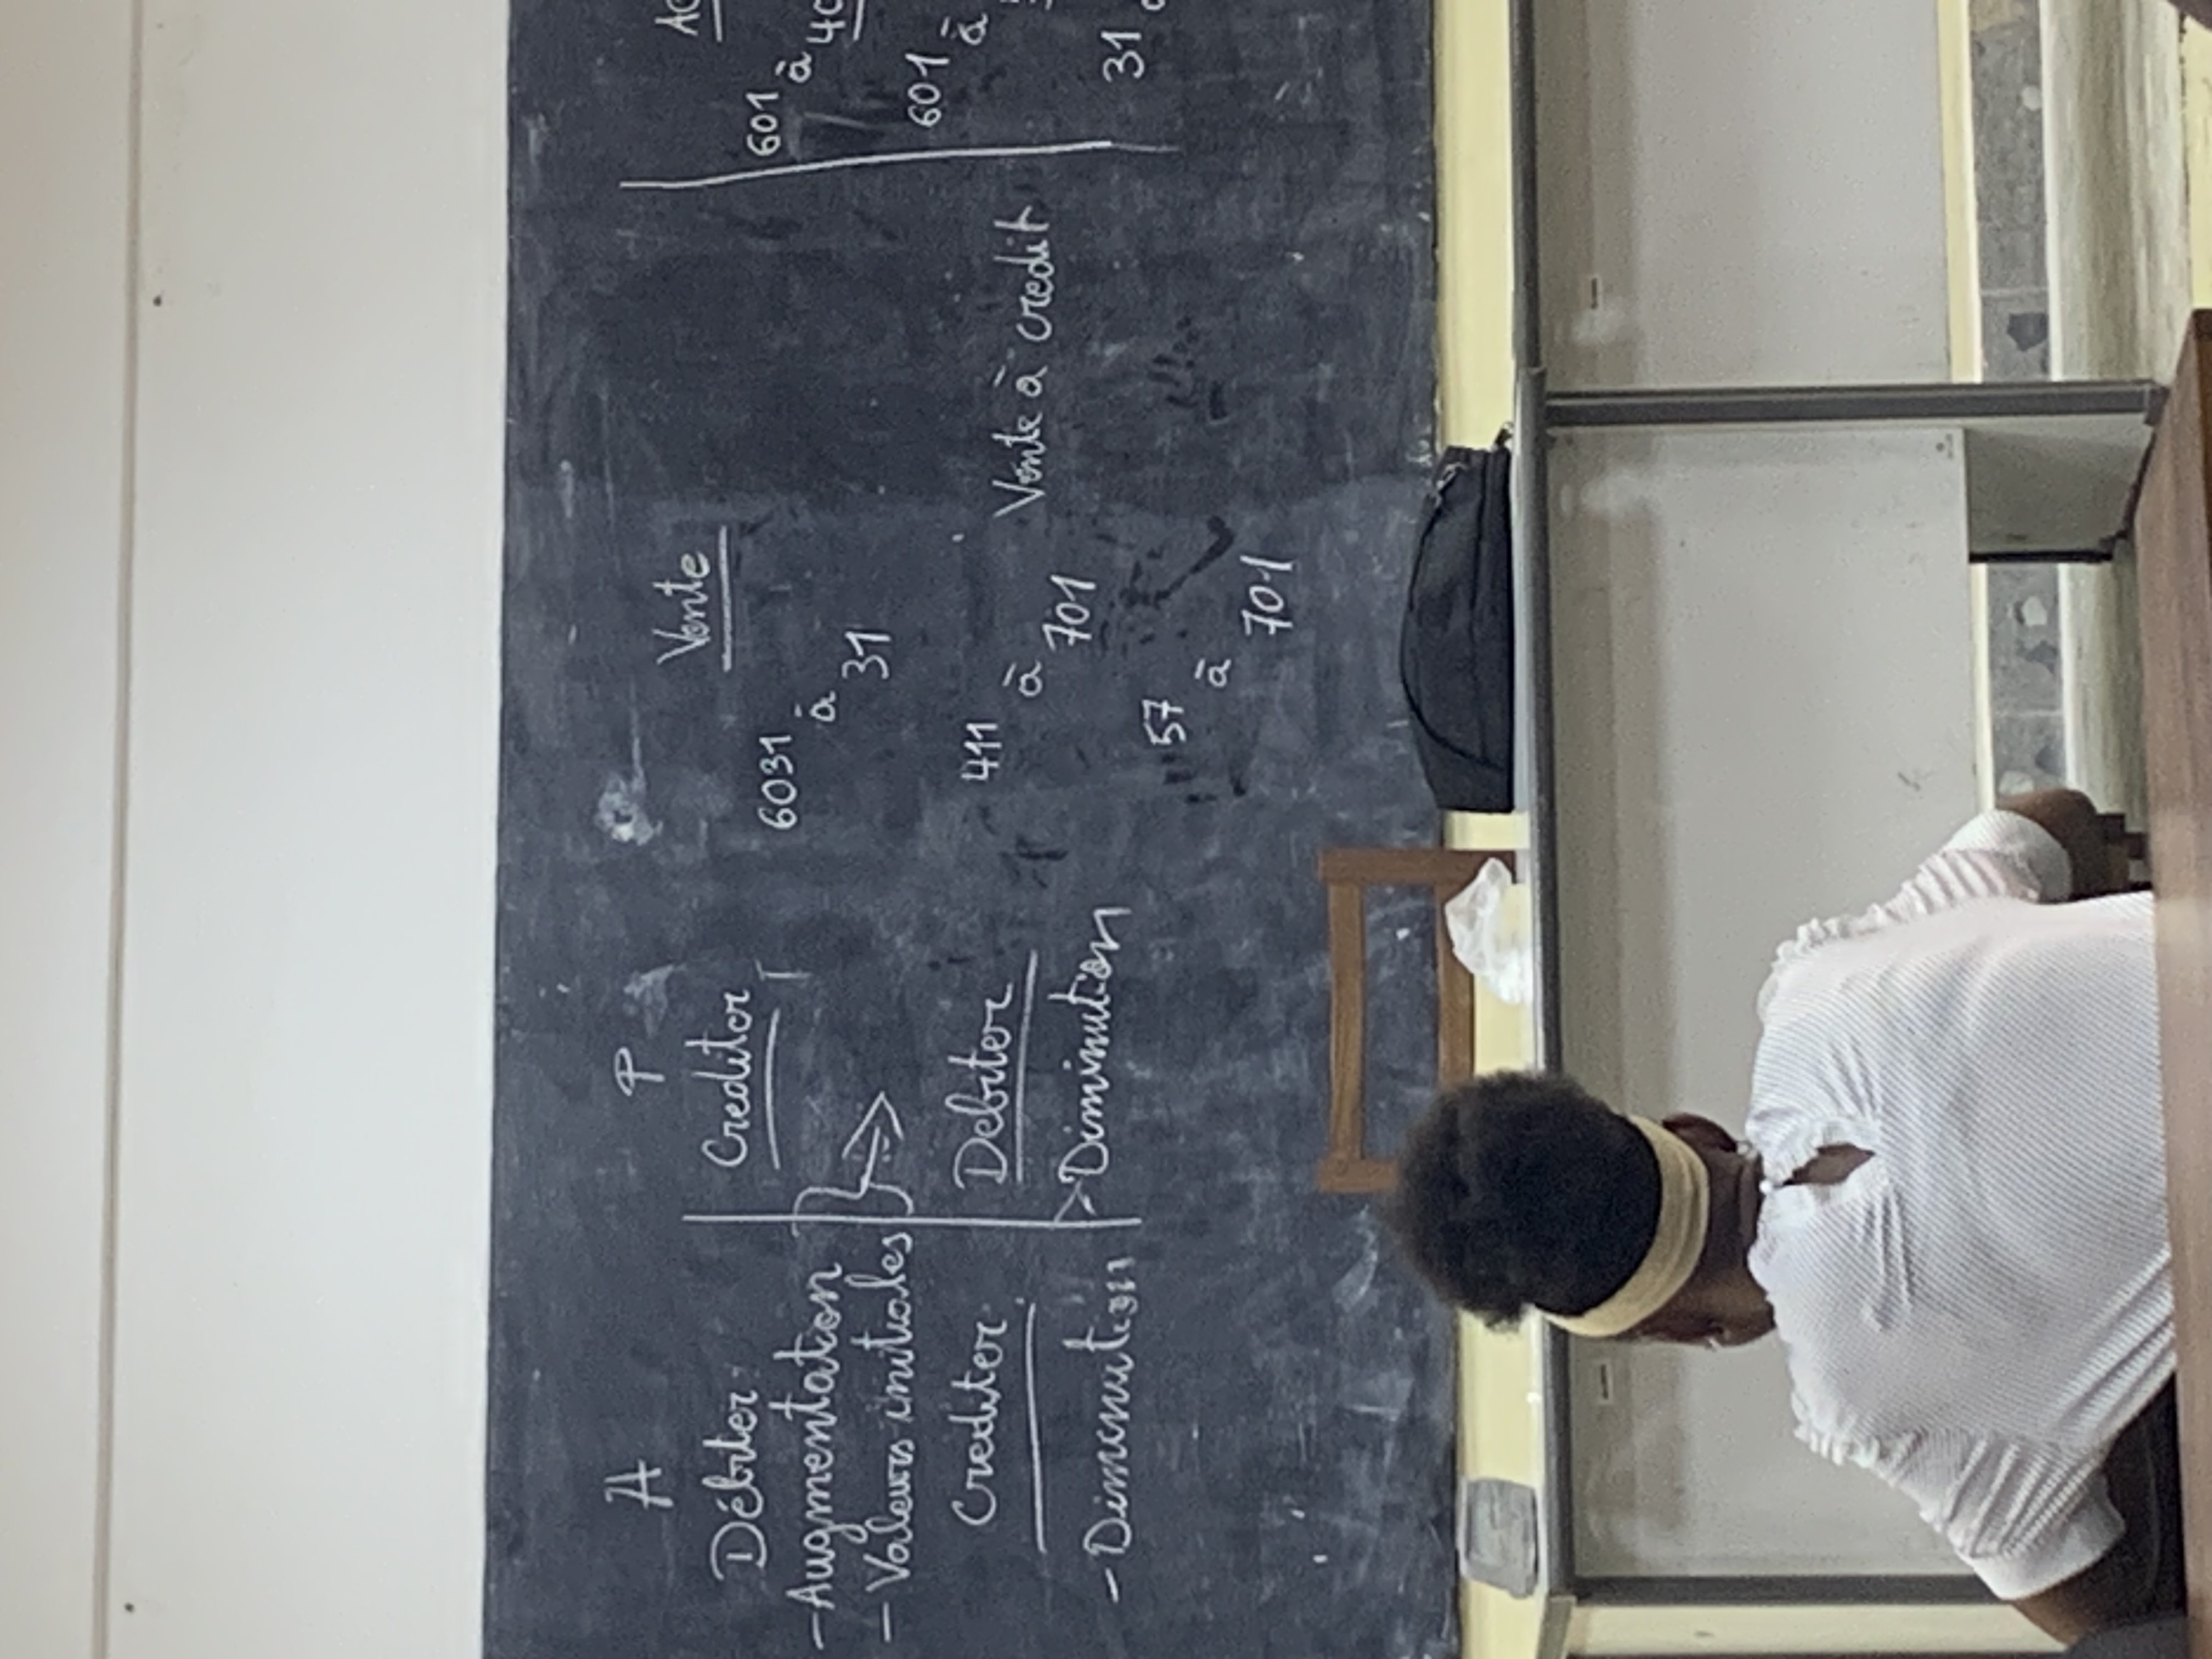 A
Débiter
-Augmentation
- Valeurs initiales
Crediter
- Diminution
P
Crediter
Debiter
Diminution
Vente
6031
à
31
411
à
701
Vente à credit
57
à
701
601
à
601
à
31